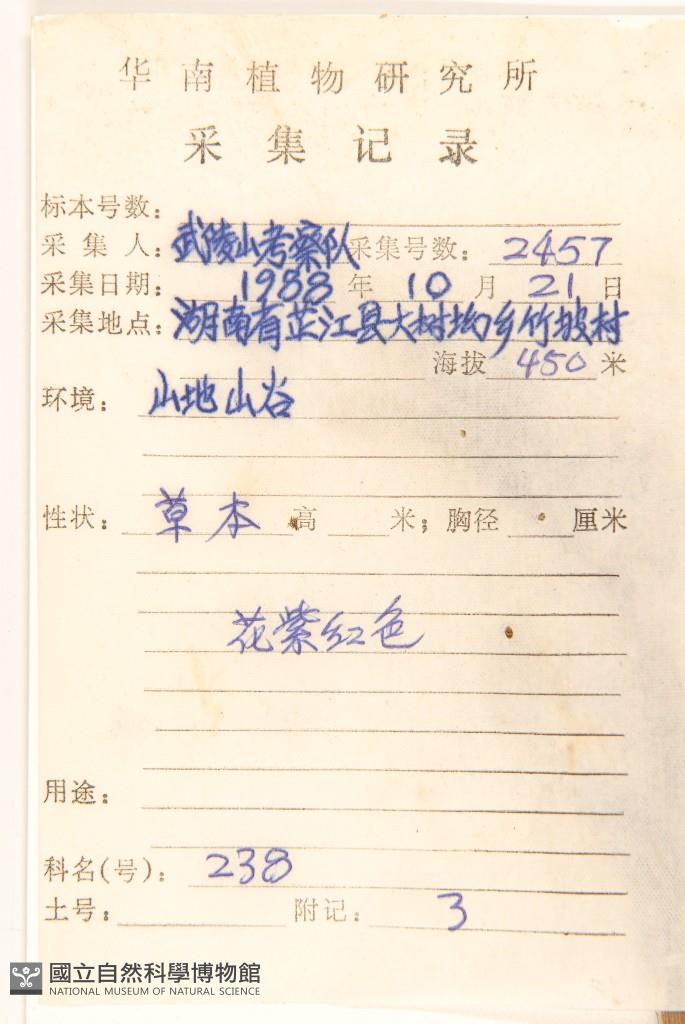 华南植物研究所
采集记录
标本号数:
采集人: 武陵山考察队 采集号数: 2457
采集日期: 1988 年 10 月 21 日
采集地点: 湖南省芷江县大树坳乡竹坡村
海拔 450 米
环境: 山地山谷
性状: 草本 高 米; 胸径 厘米
花紫红色
用途:
科名(号): 238
土号: 附记: 3
國立自然科學博物館
NATIONAL MUSEUM OF NATURAL SCIENCE